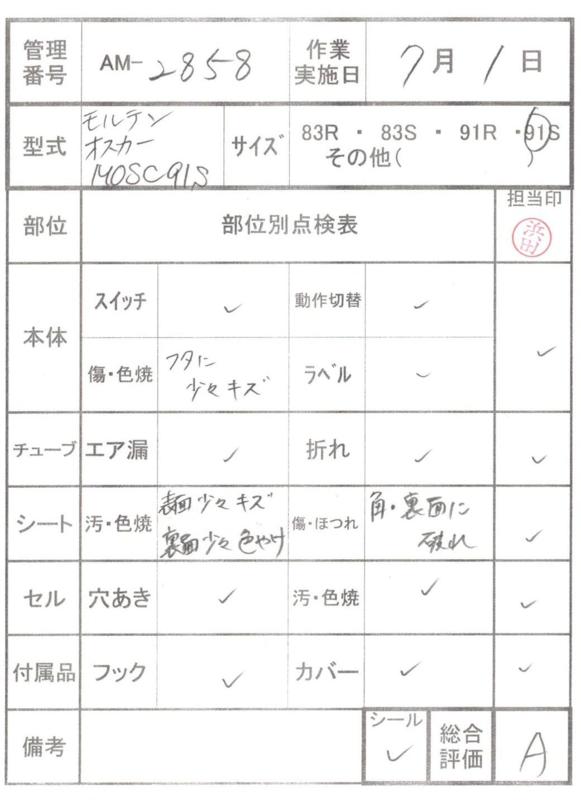 管理番号 AM-2858 作業実施日 7月1日
型式 モルテン オスカー MOSC91S サイズ 83R ・ 83S ・ 91R ・ 91S
その他( )
部位 部位別点検表 担当印 浜田
本体 スイッチ ✓ 動作切替 ✓ ✓
傷・色焼 フタに少々キズ ラベル ✓
チューブ エア漏 ✓ 折れ ✓ ✓
シート 汚・色焼 表面少々キズ 裏面少々色やけ 傷・ほつれ 角・裏面に破れ ✓
セル 穴あき ✓ 汚・色焼 ✓ ✓
付属品 フック ✓ カバー ✓ ✓
備考 シール ✓ 総合評価 A